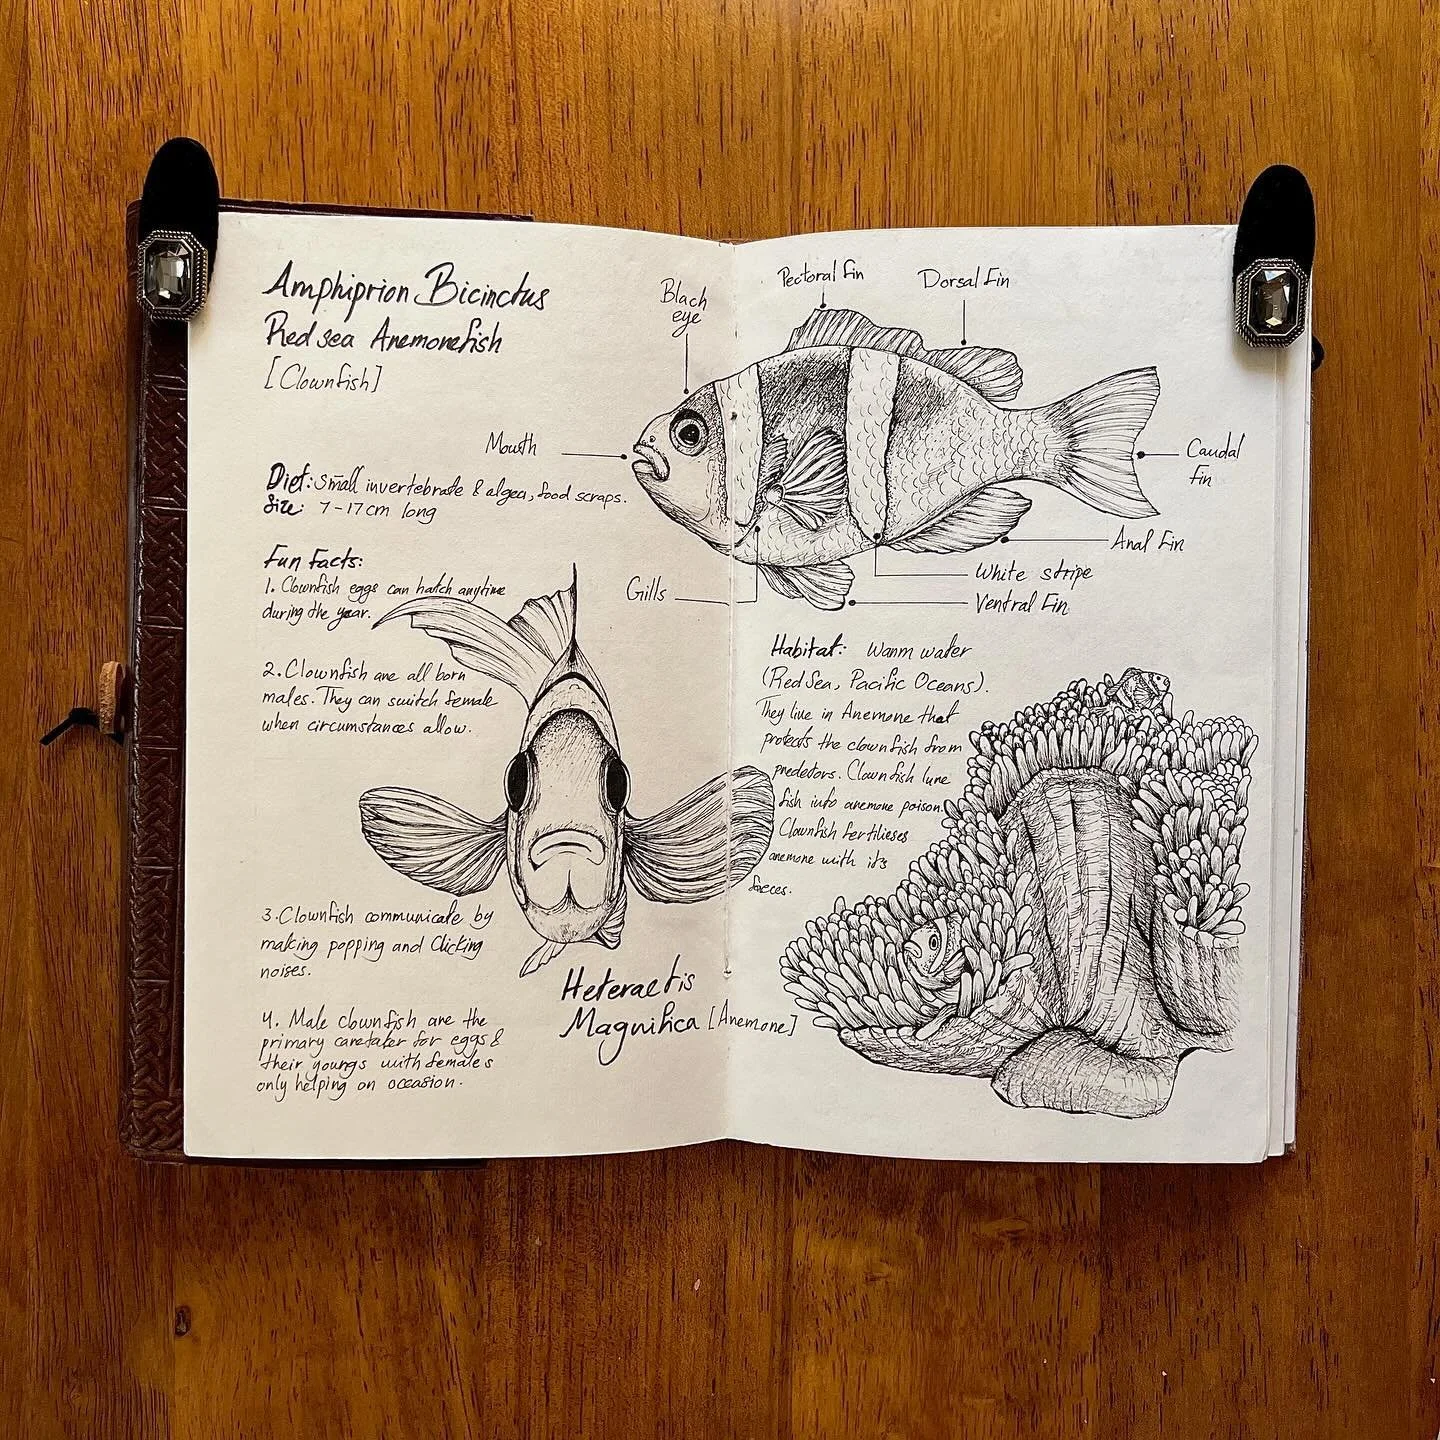 Amphiprion Bicinctus
Red sea Anemonefish
[Clownfish]
Diet: Small invertebrate & algea, food scraps.
Size: 7-17cm long
Fun Facts:
1. Clownfish eggs can hatch anytime
during the year.
2. Clownfish are all born
males. They can switch female
when circumstances allow.
3. Clownfish communicate by
making popping and Clicking
noises.
4. Male clownfish are the
primary caretaker for eggs &
their youngs with females
only helping on occasion.
Black
eye
Mouth
Gills
Heteractis
Magnifica [Anemone]
Pectoral fin
Dorsal fin
Caudal
Fin
Anal Fin
White stripe
Ventral Fin
Habitat: Warm water
(Red Sea, Pacific Oceans).
They live in Anemone that
protects the clownfish from
predetors. Clownfish lure
fish into anemone poison.
Clownfish fertilieses
anemone with it's
faeces.